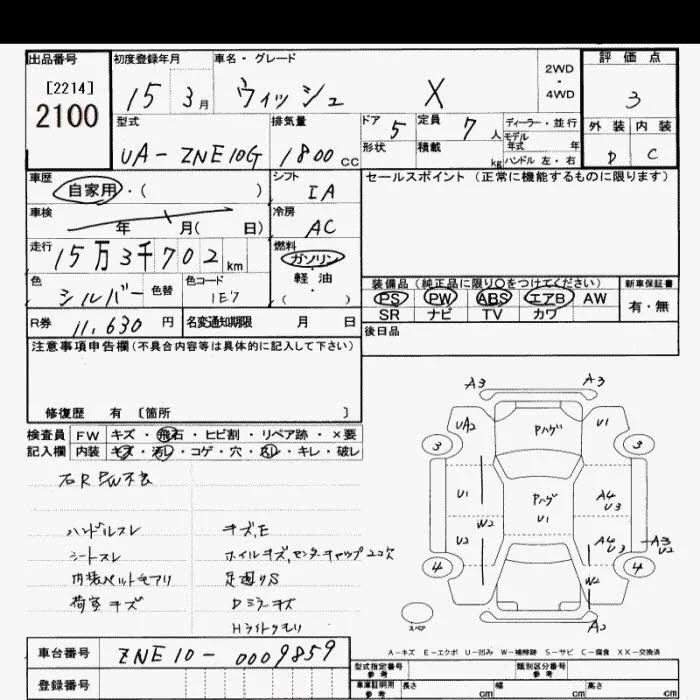 出品番号 初度登録年月 車名・グレード 2WD・4WD 評価点
[2214]
2100
15 3月 ウィッシュ X 3
型式 排気量 ドア 5 定員 7人 ディーラー・並行 外装 内装
モデル年式 年
UA-ZNE10G 1800cc 形状 積載 kg ハンドル 左・右 D C
車歴 シフト セールスポイント(正常に機能するものに限ります)
自家用・( ) IA
車検 冷房
年 月( 日) AC
走行 燃料
15万3千702km ガソリン・軽油・( )
色 色替 色コード
シルバー 1E7
装備品(純正品に限り○をつけてください) 新車保証書
PS PW ABS エアB AW 有・無
SR ナビ TV カワ
R券 11,630円 名変通知期限 月 日
後日品
注意事項申告欄(不具合内容等は具体的に記入して下さい)
修復歴 有 〔箇所 〕
検査員 FW キズ・飛石・ヒビ割・リペア跡・×要
記入欄 内装 キズ・汚レ・コゲ・穴・スレ・キレ・破レ
右R PW不良
ハンドルスレ キズ,E
シートスレ ホイルキズ,センターキャップ2コ欠
内張ペットモアリ 足廻りS
荷室キズ Dミラーキズ
Hライトクモリ
A3 A3
UA2 Pハゲ U1
3 3
U1 Pハゲ A4
U1 U3
W2
U2 A4 U3 A3 U2
4 4
W2
スペア A2
A-キズ E-エクボ U-凹み W-補修跡 S-サビ C-腐食 XX-交換済
車台番号 ZNE10-0009859
登録番号
型式指定番号 参考 類別区分番号 参考
車庫証明用 参考 長さ cm 幅 cm 高さ cm